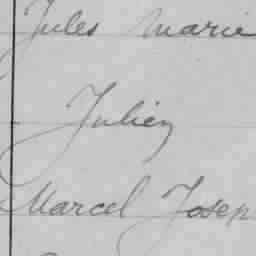 Jules Marie
Julien
Marcel Josep